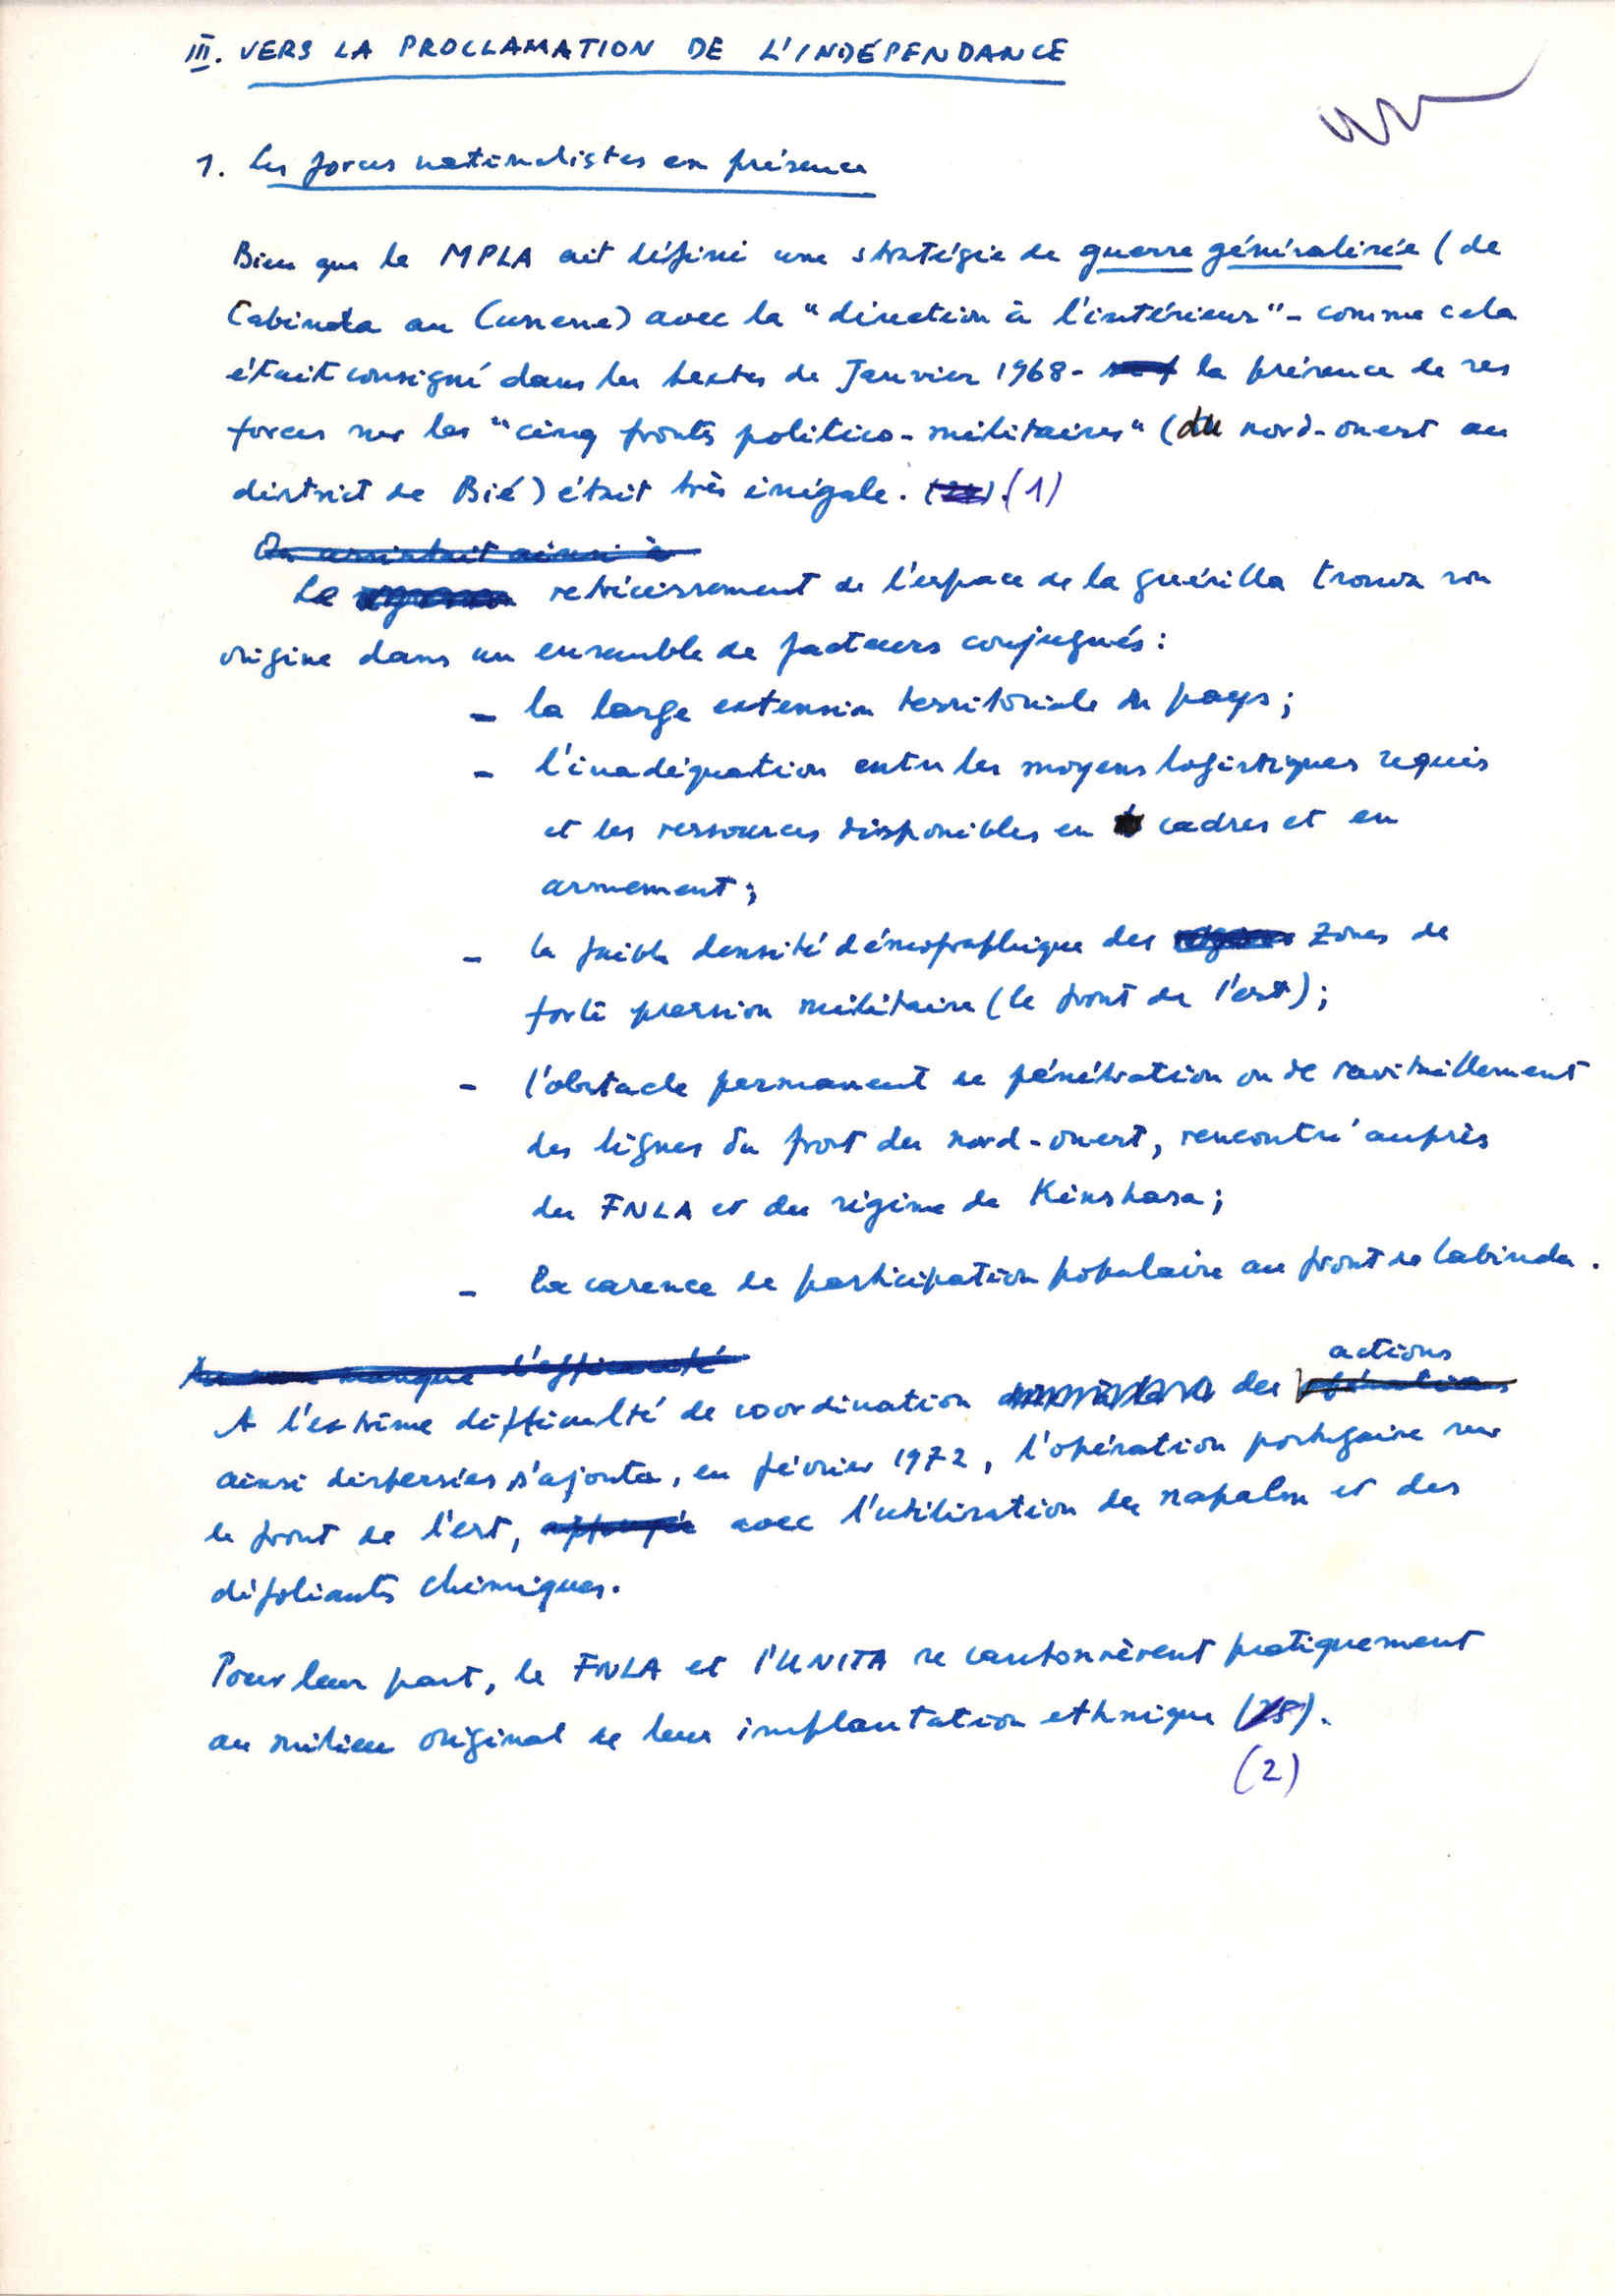 III. VERS LA PROCLAMATION DE L'INDÉPENDANCE
1. Les forces nationalistes en présence
Bien que le MPLA ait défini une stratégie de guerre généralisée (de
Cabinda au Cunene) avec la "direction à l'intérieur" - comme cela
était consigné dans les textes de Janvier 1968 - la présence de ses
forces sur les "cinq fronts politico-militaires" (du nord-ouest au
district de Bié) était très inégale. (1)
On assistait ainsi à
Le rétrécissement de l'espace de la guérilla trouva son
origine dans un ensemble de facteurs conjugués :
- la large extension territoriale du pays ;
- l'inadéquation entre les moyens logistiques requis
et les ressources disponibles en cadres et en
armement ;
- la faible densité démographique des zones de
forte pression militaire (le front de l'est) ;
- l'obstacle permanent de pénétration ou de ravitaillement
des lignes du front du nord-ouest, rencontré auprès
du FNLA et du régime de Kinshasa ;
- la carence de participation populaire au front de Cabinda.
manque d'efficacité
actions
A l'extrême difficulté de coordination des opérations
ainsi dispersées s'ajouta, en février 1972, l'opération portugaise sur
le front de l'est, appuyée avec l'utilisation du napalm et des
défoliants chimiques.
Pour leur part, le FNLA et l'UNITA se cantonnèrent pratiquement
au milieu original de leur implantation ethnique (25).
(2)